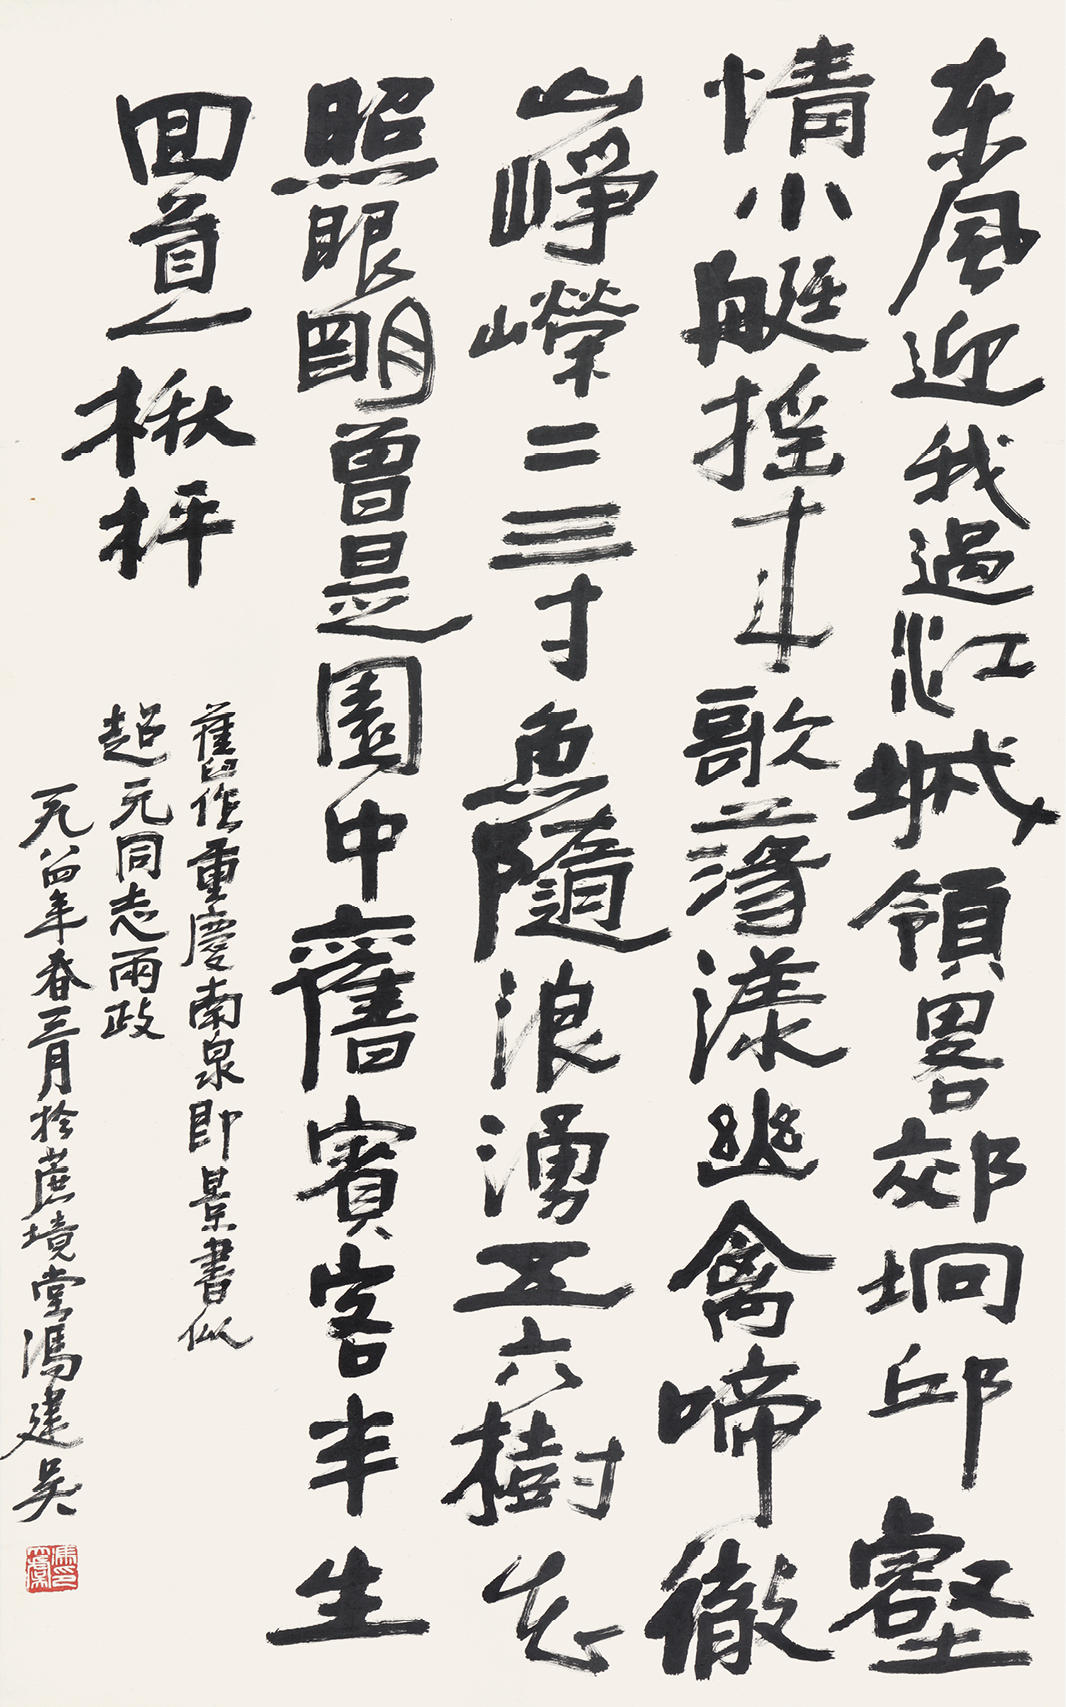 东风迎我過江城領畧郊坰邱壑
情小艇摇来歌荡漾幽禽啼徹
山崢嶸二三寸魚隨浪湧五六樹花
照眼明曾是園中舊賓客半生
回首一楸枰
舊作重慶南泉即景書似
超元同志兩政
一九八四年春三月於蔗境堂馮建吴